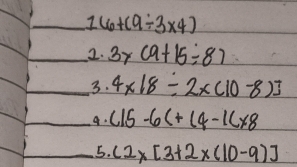 1.(6+(9÷3×4)
2.3×(9+15÷8)
3.4×18÷2×(10-8)]
4.(15-6(+(4-1(×8
5.(2×[3+2×(10-9)]